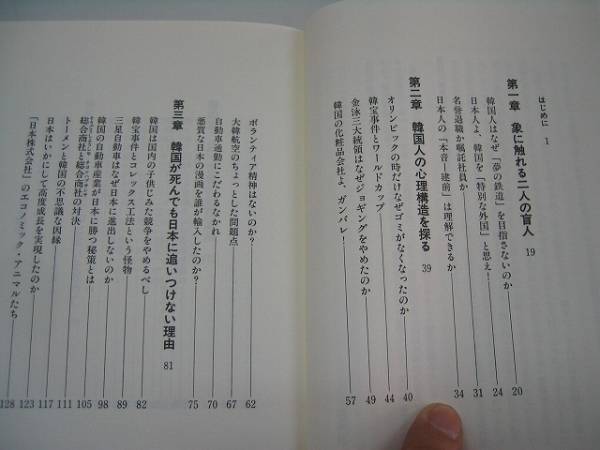 はじめに 1
第一章 象に触れる二人の盲人 19
韓国人はなぜ「夢の鉄道」を目指さないのか 20
日本人よ、韓国を「特別な外国」と思え! 24
名誉退職か嘱託社員か 31
日本人の「本音―建前」は理解できるか 34
第二章 韓国人の心理構造を探る 39
オリンピックの時だけなぜゴミがなくなったのか 40
韓宝事件とワールドカップ 44
金泳三大統領はなぜジョギングをやめたのか 49
韓国の化粧品会社よ、ガンバレ! 57
ボランティア精神はないのか? 62
大韓航空のちょっとした問題点 67
自動車通勤にこだわるなかれ 70
悪質な日本の漫画を誰が輸入したのか? 75
第三章 韓国が死んでも日本に追いつけない理由 81
韓国は国内の子供じみた競争をやめるべし 82
韓宝事件とコレックス工法という怪物 89
三星自動車はなぜ日本に進出しないのか 98
韓国の自動車産業が日本に勝つ秘策とは
総合商社と総合商社の対決 105
トーメンと韓国の不思議な因縁 111
日本はいかにして高度成長を実現したのか 117
「日本株式会社」のエコノミック・アニマルたち 123
128